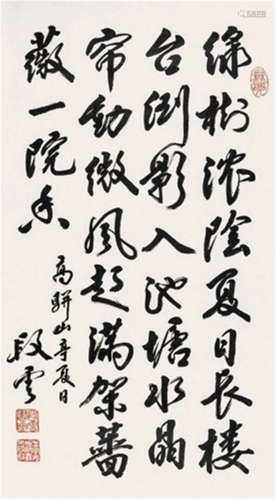 绿树浓阴夏日长楼
台倒影入池塘水晶
帘动微风起满架蔷
薇一院香
高骈山亭夏日
段云